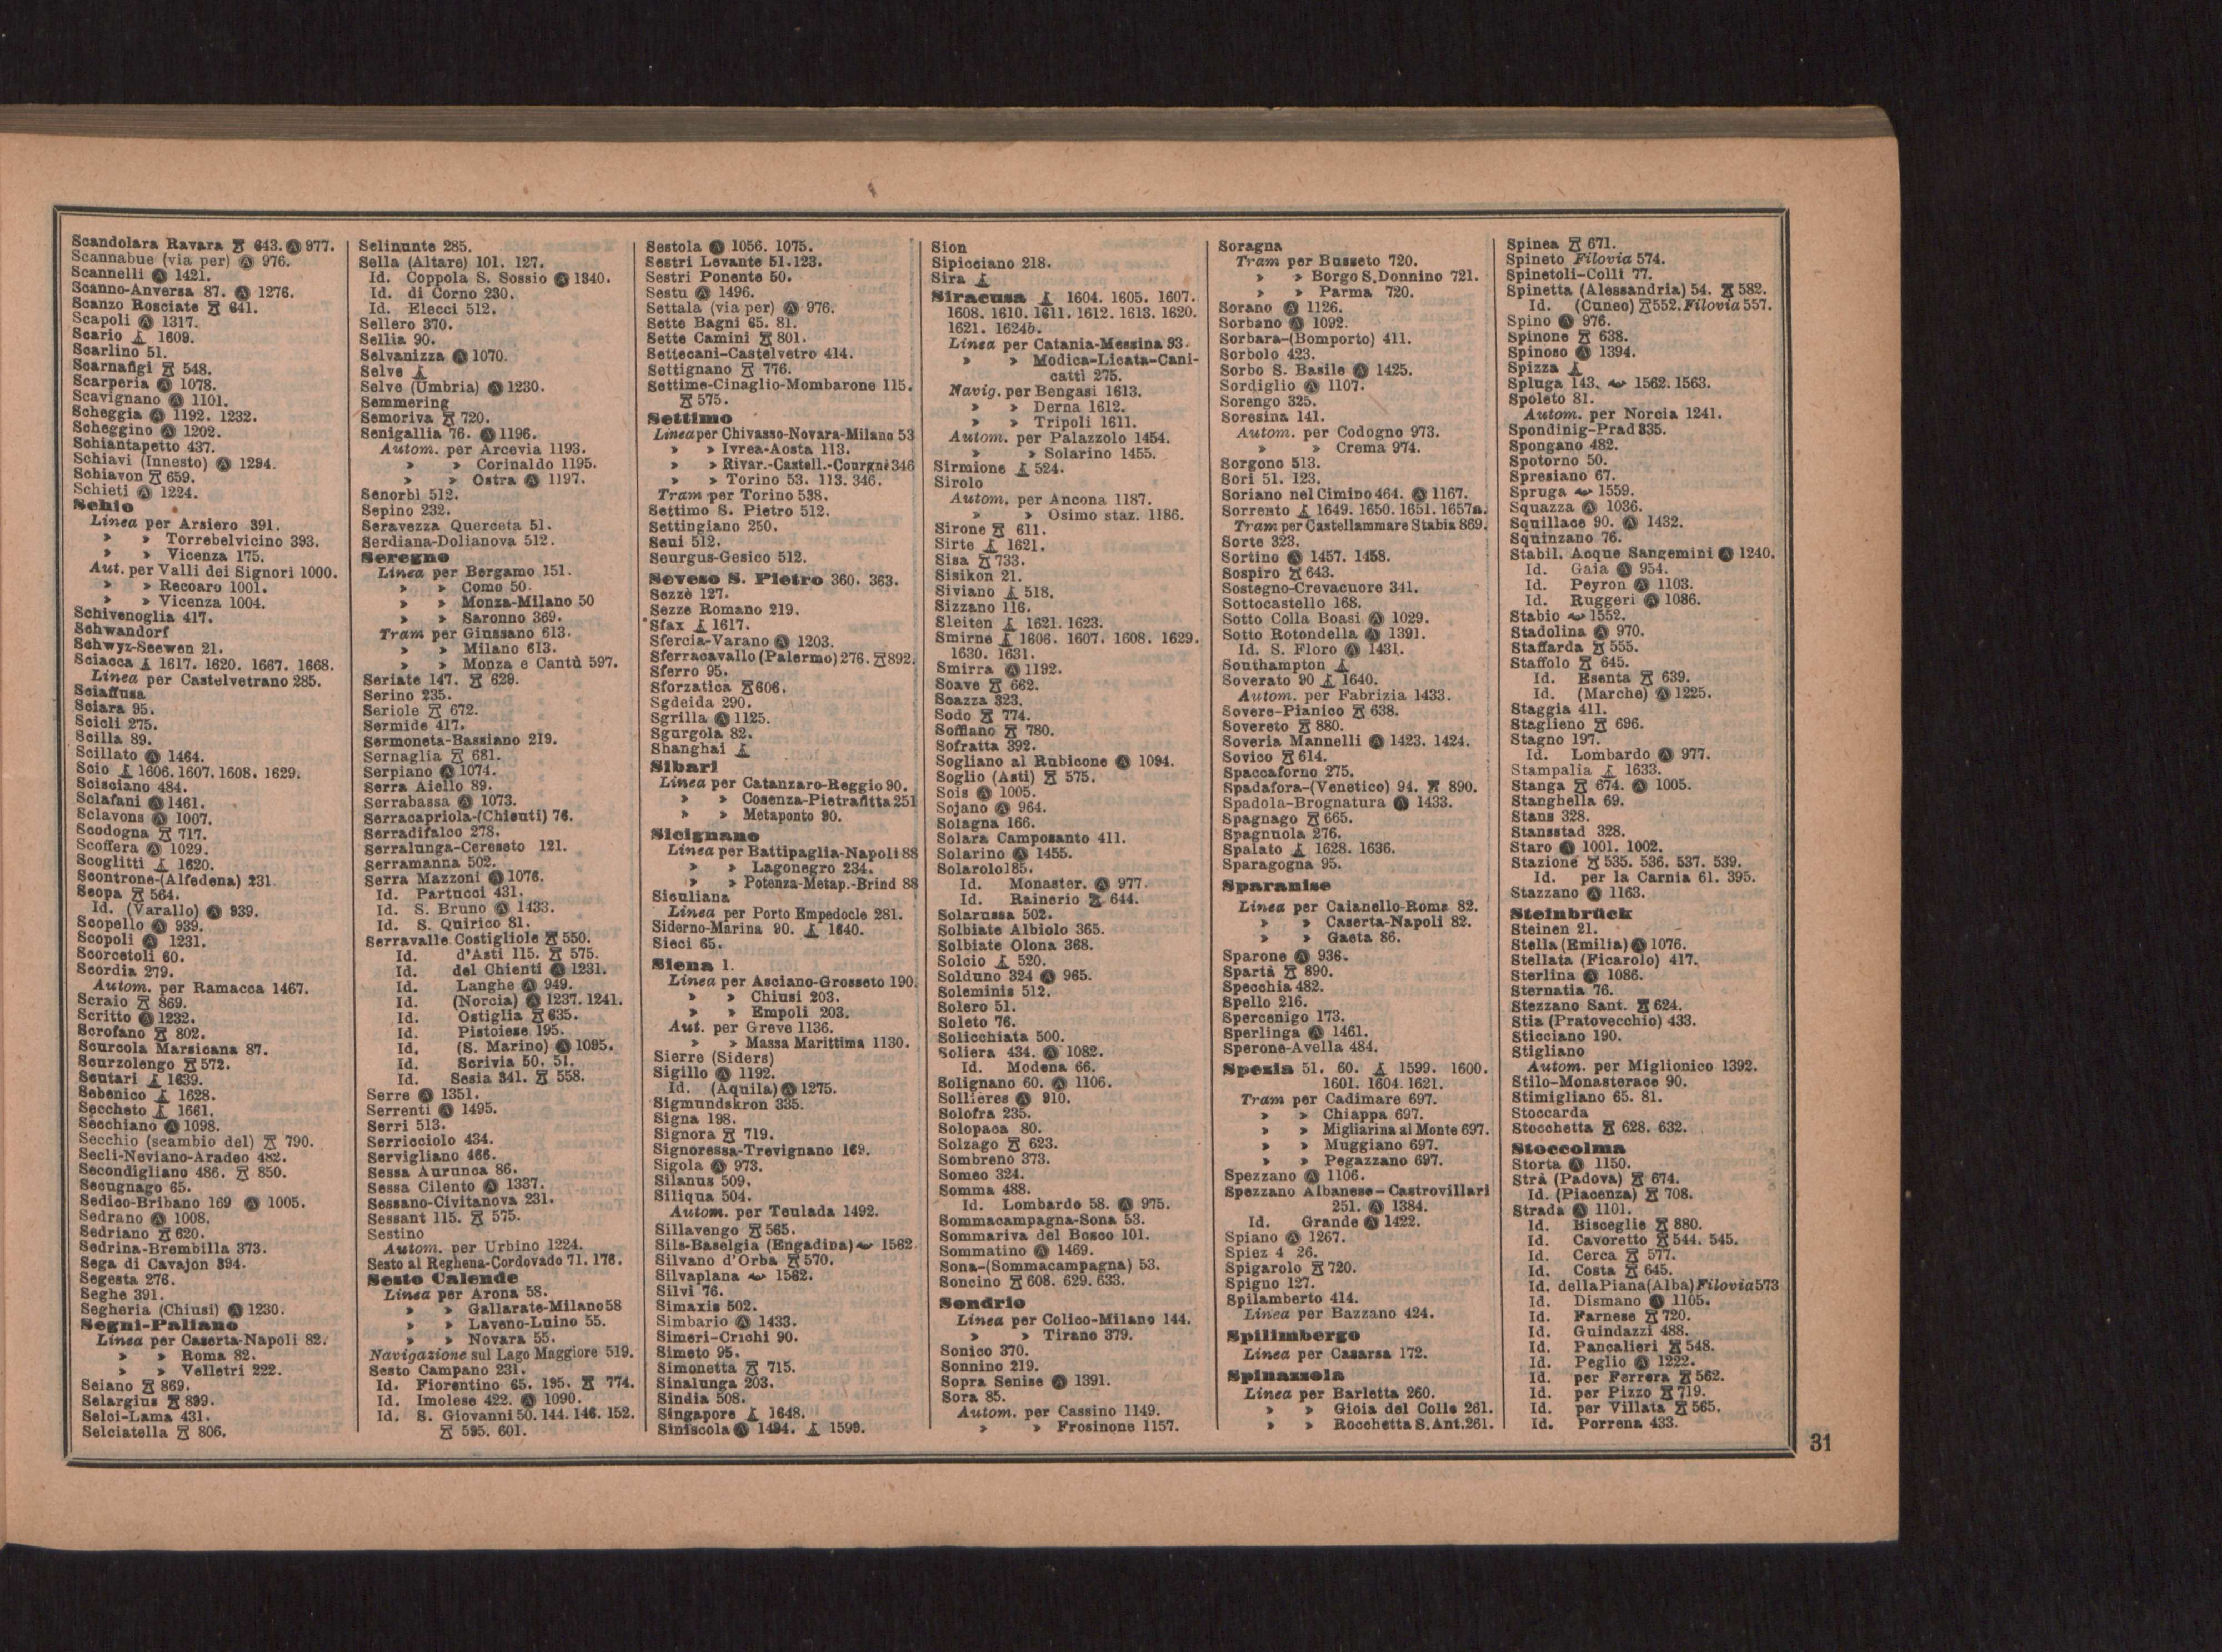 Scandolara Ravara 643. Ⓐ 977.
Scannabue (via per) Ⓐ 976.
Scannelli Ⓐ 1421.
Scanno-Anversa 87. Ⓐ 1276.
Scanzo Rosciate 641.
Scapoli Ⓐ 1317.
Scario 1609.
Scarlino 51.
Scarnafigi 548.
Scarperia Ⓐ 1078.
Scavignano Ⓐ 1101.
Scheggia Ⓐ 1192. 1232.
Scheggino Ⓐ 1202.
Schiantapetto 437.
Schiavi (Innesto) Ⓐ 1294.
Schiavon 659.
Schieti Ⓐ 1224.
Schio
Linea per Arsiero 391.
» » Torrebelvicino 393.
» » Vicenza 175.
Aut. per Valli dei Signori 1000.
» » Recoaro 1001.
» » Vicenza 1004.
Schivenoglia 417.
Schwandorf
Schwyz-Seewen 21.
Sciacca 1617. 1620. 1667. 1668.
Linea per Castelvetrano 285.
Sciaffusa
Sciara 95.
Scicli 275.
Scilla 89.
Scillato Ⓐ 1464.
Scio 1606. 1607. 1608. 1629.
Scisciano 484.
Sclafani Ⓐ 1461.
Sclavons Ⓐ 1007.
Scodogna 717.
Scoffera Ⓐ 1029.
Scoglitti 1620.
Scontrone-(Alfedena) 231.
Scopa 564.
Id. (Varallo) Ⓐ 939.
Scopello Ⓐ 939.
Scopoli Ⓐ 1231.
Scorcetoli 60.
Scordia 279.
Autom. per Ramacca 1467.
Scraio 869.
Scritto Ⓐ 1232.
Scrofano 802.
Scurcola Marsicana 87.
Scurzolengo 572.
Scutari 1639.
Sebenico 1628.
Seccheto 1661.
Secchiano Ⓐ 1098.
Secchio (scambio del) 790.
Secli-Neviano-Aradeo 482.
Secondigliano 486. 850.
Secugnago 65.
Sedico-Bribano 169 Ⓐ 1005.
Sedrano Ⓐ 1008.
Sedriano 620.
Sedrina-Brembilla 373.
Sega di Cavajon 394.
Segesta 276.
Seghe 391.
Segheria (Chiusi) Ⓐ 1230.
Segni-Paliano
Linea per Caserta-Napoli 82.
» » Roma 82.
» » Velletri 222.
Seiano 869.
Selargius 899.
Selci-Lama 431.
Selciatella 806.
Selinunte 285.
Sella (Altare) 101. 127.
Id. Coppola S. Sossio Ⓐ 1340.
Id. di Corno 230.
Id. Elecci 512.
Sellero 370.
Sellia 90.
Selvanizza Ⓐ 1070.
Selve
Selve (Umbria) Ⓐ 1230.
Semmering
Semoriva 720.
Senigallia 76. Ⓐ 1196.
Autom. per Arcevia 1193.
» » Corinaldo 1195.
» » Ostra Ⓐ 1197.
Senorbì 512.
Sepino 232.
Seravezza Querceta 51.
Serdiana-Dolianova 512.
Seregno
Linea per Bergamo 151.
» » Como 50.
» » Monza-Milano 50
» » Saronno 369.
Tram per Giussano 613.
» » Milano 613.
» » Monza e Cantù 597.
Seriate 147. 629.
Serino 235.
Seriole 672.
Sermide 417.
Sermoneta-Bassiano 219.
Sernaglia 681.
Serpiano Ⓐ 1074.
Serra Aiello 89.
Serrabassa Ⓐ 1073.
Serracapriola-(Chieuti) 76.
Serradifalco 278.
Serralunga-Cereseto 121.
Serramanna 502.
Serra Mazzoni Ⓐ 1076.
Id. Partucci 431.
Id. S. Bruno Ⓐ 1433.
Id. S. Quirico 81.
Serravalle Costigliole 550.
Id. d'Asti 115. 575.
Id. del Chienti Ⓐ 1231.
Id. Langhe Ⓐ 949.
Id. (Norcia) Ⓐ 1237. 1241.
Id. Ostiglia 635.
Id. Pistoiese 195.
Id. (S. Marino) Ⓐ 1095.
Id. Scrivia 50. 51.
Id. Sesia 341. 558.
Serre Ⓐ 1351.
Serrenti Ⓐ 1495.
Serri 513.
Serricciolo 434.
Servigliano 466.
Sessa Aurunca 86.
Sessa Cilento Ⓐ 1337.
Sessano-Civitanova 231.
Sessant 115. 575.
Sestino
Autom. per Urbino 1224.
Sesto al Reghena-Cordovado 71. 176.
Sesto Calende
Linea per Arona 58.
» » Gallarate-Milano 58
» » Laveno-Luino 55.
» » Novara 55.
Navigazione sul Lago Maggiore 519.
Sesto Campano 231.
Id. Fiorentino 65. 195. 774.
Id. Imolese 422. Ⓐ 1090.
Id. S. Giovanni 50. 144. 146. 152.
595. 601.
Sestola Ⓐ 1056. 1075.
Sestri Levante 51. 123.
Sestri Ponente 50.
Sestu Ⓐ 1496.
Settala (via per) Ⓐ 976.
Sette Bagni 65. 81.
Sette Camini 801.
Settecani-Castelvetro 414.
Settignano 776.
Settime-Cinaglio-Mombarone 115.
575.
Settimo
Linea per Chivasso-Novara-Milano 53
» » Ivrea-Aosta 113.
» » Rivar.-Castell.-Courgnè 346
» » Torino 53. 113. 346.
Tram per Torino 538.
Settimo S. Pietro 512.
Settingiano 250.
Seui 512.
Seurgus-Gesico 512.
Seveso S. Pietro 360. 363.
Sezzè 127.
Sezze Romano 219.
Sfax 1617.
Sfercia-Varano Ⓐ 1203.
Sferracavallo (Palermo) 276. 892.
Sferro 95.
Sforzatica 606.
Sgdeida 290.
Sgrilla Ⓐ 1125.
Sgurgola 82.
Shanghai
Sibari
Linea per Catanzaro-Reggio 90.
» » Cosenza-Pietrafitta 251
» » Metaponto 90.
Sicignano
Linea per Battipaglia-Napoli 88
» » Lagonegro 234.
» » Potenza-Metap.-Brind 88
Siculiana
Linea per Porto Empedocle 281.
Siderno-Marina 90. 1640.
Sieci 65.
Siena 1.
Linea per Asciano-Grosseto 190.
» » Chiusi 203.
» » Empoli 203.
Aut. per Greve 1136.
» » Massa Marittima 1130.
Sierre (Siders)
Sigillo Ⓐ 1192.
Id. (Aquila) Ⓐ 1275.
Sigmundskron 335.
Signa 198.
Signora 719.
Signoressa-Trevignano 169.
Sigola Ⓐ 973.
Silanus 509.
Siliqua 504.
Autom. per Teulada 1492.
Sillavengo 565.
Sils-Baselgia (Engadina) 1562
Silvano d'Orba 570.
Silvaplana 1562.
Silvi 76.
Simaxis 502.
Simbario Ⓐ 1433.
Simeri-Crichi 90.
Simeto 95.
Simonetta 715.
Sinalunga 203.
Sindia 508.
Singapore 1648.
Siniscola Ⓐ 1494. 1599.
Sion
Sipicciano 218.
Sira
Siracusa 1604. 1605. 1607.
1608. 1610. 1611. 1612. 1613. 1620.
1621. 1624b.
Linea per Catania-Messina 93.
» » Modica-Licata-Cani-
cattì 275.
Navig. per Bengasi 1613.
» » Derna 1612.
» » Tripoli 1611.
Autom. per Palazzolo 1454.
» » Solarino 1455.
Sirmione 524.
Sirolo
Autom. per Ancona 1187.
» » Osimo staz. 1186.
Sirone 611.
Sirte 1621.
Sisa 733.
Sisikon 21.
Siviano 518.
Sizzano 116.
Sleiten 1621. 1623.
Smirne 1606. 1607. 1608. 1629.
1630. 1631.
Smirra Ⓐ 1192.
Soave 662.
Soazza 323.
Sodo 774.
Soffiano 780.
Sofratta 392.
Sogliano al Rubicone Ⓐ 1094.
Soglio (Asti) 575.
Sois Ⓐ 1005.
Sojano Ⓐ 964.
Solagna 166.
Solara Camposanto 411.
Solarino Ⓐ 1455.
Solarolo 185.
Id. Monaster. Ⓐ 977.
Id. Rainerio 644.
Solarussa 502.
Solbiate Albiolo 365.
Solbiate Olona 368.
Solcio 520.
Solduno 324 Ⓐ 965.
Soleminis 512.
Solero 51.
Soleto 76.
Solicchiata 500.
Soliera 434. Ⓐ 1082.
Id. Modena 66.
Solignano 60. Ⓐ 1106.
Sollieres Ⓐ 910.
Solofra 235.
Solopaca 80.
Solzago 623.
Sombreno 373.
Someo 324.
Somma 488.
Id. Lombardo 58. Ⓐ 975.
Sommacampagna-Sona 53.
Sommariva del Bosco 101.
Sommatino Ⓐ 1469.
Sona-(Sommacampagna) 53.
Soncino 608. 629. 633.
Sondrio
Linea per Colico-Milano 144.
» » Tirano 379.
Sonico 370.
Sonnino 219.
Sopra Senise Ⓐ 1391.
Sora 85.
Autom. per Cassino 1149.
» » Frosinone 1157.
Soragna
Tram per Busseto 720.
» » Borgo S. Donnino 721.
» » Parma 720.
Sorano Ⓐ 1126.
Sorbano Ⓐ 1092.
Sorbara-(Bomporto) 411.
Sorbolo 423.
Sorbo S. Basile Ⓐ 1425.
Sordiglio Ⓐ 1107.
Sorengo 325.
Soresina 141.
Autom. per Codogno 973.
» » Crema 974.
Sorgono 513.
Sori 51. 123.
Soriano nel Cimino 464. Ⓐ 1167.
Sorrento 1649. 1650. 1651. 1657a.
Tram per Castellammare Stabia 869.
Sorte 323.
Sortino Ⓐ 1457. 1458.
Sospiro 643.
Sostegno-Crevacuore 341.
Sottocastello 168.
Sotto Colla Boasi Ⓐ 1029.
Sotto Rotondella Ⓐ 1391.
Id. S. Floro Ⓐ 1431.
Southampton
Soverato 90 1640.
Autom. per Fabrizia 1433.
Sovere-Pianico 638.
Sovereto 880.
Soveria Mannelli Ⓐ 1423. 1424.
Sovico 614.
Spaccaforno 275.
Spadafora-(Venetico) 94. 890.
Spadola-Brognatura Ⓐ 1433.
Spagnago 665.
Spagnuola 276.
Spalato 1628. 1636.
Sparagogna 95.
Sparanise
Linea per Caianello-Roma 82.
» » Caserta-Napoli 82.
» » Gaeta 86.
Sparone Ⓐ 936.
Spartà 890.
Specchia 482.
Spello 216.
Spercenigo 173.
Sperlinga Ⓐ 1461.
Sperone-Avella 484.
Spezia 51. 60. 1599. 1600.
1601. 1604. 1621.
Tram per Cadimare 697.
» » Chiappa 697.
» » Migliarina al Monte 697.
» » Muggiano 697.
» » Pegazzano 697.
Spezzano Ⓐ 1106.
Spezzano Albanese-Castrovillari
251. Ⓐ 1384.
Id. Grande Ⓐ 1422.
Spiano Ⓐ 1267.
Spiez 4 26.
Spigarolo 720.
Spigno 127.
Spilamberto 414.
Linea per Bazzano 424.
Spilimbergo
Linea per Casarsa 172.
Spinazzola
Linea per Barletta 260.
» » Gioia del Colle 261.
» » Rocchetta S. Ant. 261.
Spinea 671.
Spineto Filovia 574.
Spinetoli-Colli 77.
Spinetta (Alessandria) 54. 582.
Id. (Cuneo) 552. Filovia 557.
Spino Ⓐ 976.
Spinone 638.
Spinoso Ⓐ 1394.
Spizza
Spluga 143. 1562. 1563.
Spoleto 81.
Autom. per Norcia 1241.
Spondinig-Prad 335.
Spongano 482.
Spotorno 50.
Spresiano 67.
Spruga 1559.
Squazza Ⓐ 1036.
Squillace 90. Ⓐ 1432.
Squinzano 76.
Stabil. Acque Sangemini Ⓐ 1240.
Id. Gaia Ⓐ 954.
Id. Peyron Ⓐ 1103.
Id. Ruggeri Ⓐ 1086.
Stabio 1552.
Stadolina Ⓐ 970.
Staffarda 555.
Staffolo 645.
Id. Esenta 639.
Id. (Marche) Ⓐ 1225.
Staggia 411.
Staglieno 696.
Stagno 197.
Id. Lombardo Ⓐ 977.
Stampalia 1633.
Stanga 674. Ⓐ 1005.
Stanghella 69.
Stans 328.
Stansstad 328.
Staro Ⓐ 1001. 1002.
Stazione 535. 536. 537. 539.
Id. per la Carnia 61. 395.
Stazzano Ⓐ 1163.
Steinbrück
Steinen 21.
Stella (Emilia) Ⓐ 1076.
Stellata (Ficarolo) 417.
Sterlina Ⓐ 1086.
Sternatia 76.
Stezzano Sant. 624.
Stia (Pratovecchio) 433.
Sticciano 190.
Stigliano
Autom. per Miglionico 1392.
Stilo-Monasterace 90.
Stimigliano 65. 81.
Stoccarda
Stocchetta 628. 632.
Stoccolma
Storta Ⓐ 1150.
Strà (Padova) 674.
Id. (Piacenza) 708.
Strada Ⓐ 1101.
Id. Bisceglie 880.
Id. Cavoretto 544. 545.
Id. Cerca 577.
Id. Costa 645.
Id. della Piana (Alba) Filovia 573
Id. Dismano Ⓐ 1105.
Id. Farnese 720.
Id. Guindazzi 488.
Id. Pancalieri 548.
Id. Peglio Ⓐ 1222.
Id. per Ferrera 562.
Id. per Pizzo 719.
Id. per Villata 565.
Id. Porrena 433.
31